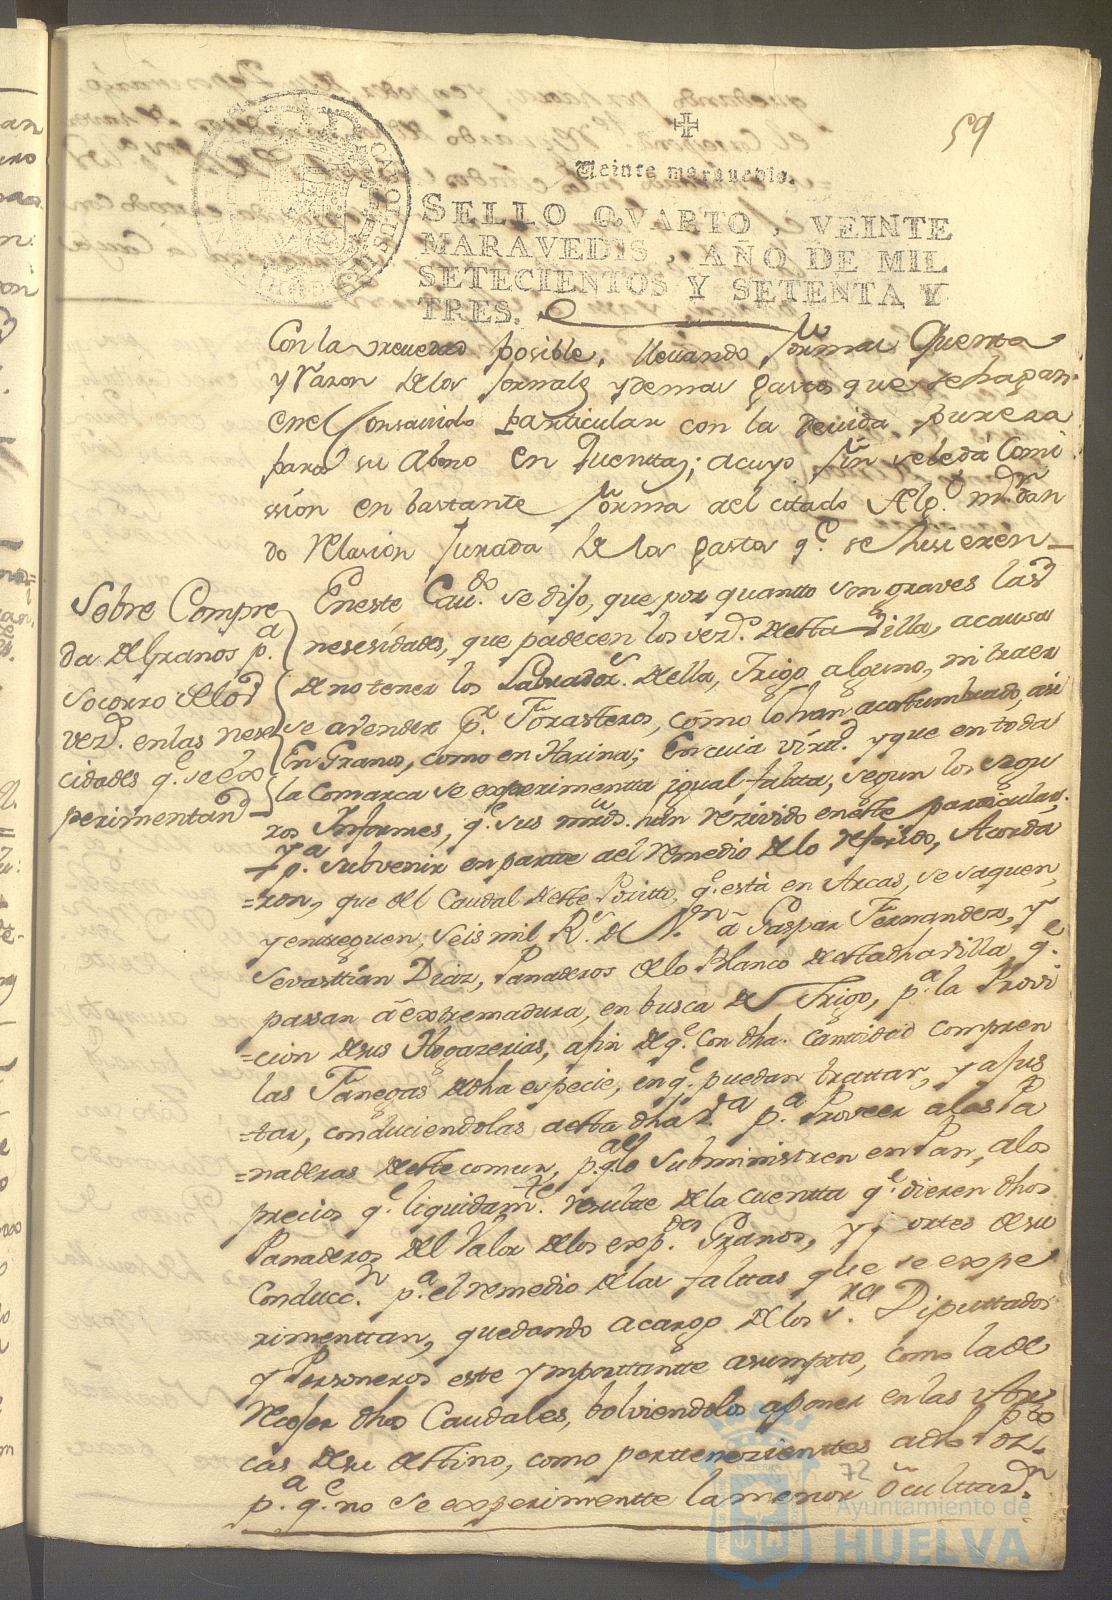 59
Veinte maravedis.
SELLO QVARTO, VEINTE
MARAVEDIS, AÑO DE MIL
SETECIENTOS Y SETENTA Y
TRES.
Con la posible, lleuando formal Quenta
y razon de los Jornals y demas gastos que se hagan
en el particular con la devida pureza
para su Abono en quenttas; acuyo fin se le dá Comi
ssión en bastante forma del citado Alg.r m.r dan
do relasion Jurada de los gastos q.e se hisieren
Sobre Compre
da de Granos p.a
socorro de los
vez.s en las nese
cidades q.e se ex
perimentan
En este Cau.do se dijo, que por quantto son graves las
nesesidades, que padecen los vez.s de esta Villa, a causa
de no tener los Labrador.s de ella, Trigo alguno, ni traer
se a vender p.r Forasteros, como lo han acostumbrado, asi
En Granos, como en Harina; En cuia virtd. y que en toda
la Comarca se experimentta igual faltta, segun los segu
ros Informes, q.e sus mrds. han rezivido en este particular,
Y p.a subvenir en partte del remedio de lo referido, Acorda
=ron, que del Caudal deste Positto, q.e está en Arcas, se saquen,
y entreguen, seis mil R.s de V.n a Gaspar Fernandez, y
Sevasttian Diaz, Panaderos de lo Blanco de esta dha villa, q.e
passan á extremadura, en busca de Trigo, p.a la Provi
=cion de sus Hogazerias, afin de q.e con dha. canttidad compren
las Fanegas de dha especie, en q.e puedan trattar, y ajus
=tar, conduciendolas a esta dha V.a p.a Proveer a las Pa
=naderas de este comun, p.a q.e lo subministren en Pan, a los
precios q.e liquidam.te resulte de la cuentta q.e dieren dhos
Panaderos del Valor de los exp.dos Granos, y portes de su
Conducc.n p.a el remedio de las falttas que se expe
rimenttan, quedando a cargo de los S.res Diputtados
y Personeros este ymporttantte asumpto, como la de
recojer dhos Caudales, bolviendolos a poner en las Ar
cas de su destino, como pertenezienttes a dho Pos.to
p.a q.e no se experimentte la menor Ocultaz.n
72
Ayuntamiento de
HUELVA